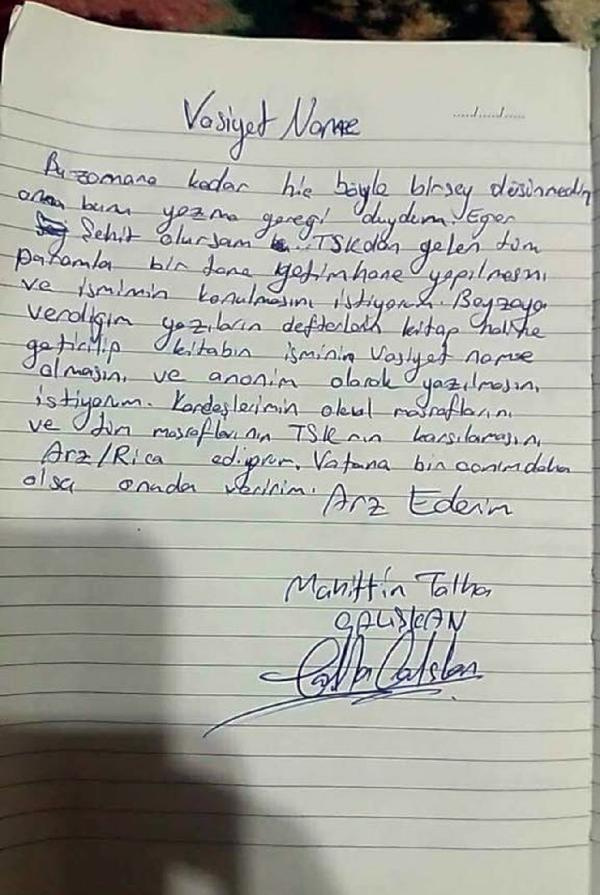 Vasiyet Name
..../..../....
Bu zamana kadar hic böyle birsey düsünmedim
ama bunu yazma geregi duydum. Eger
Şehit olursam TSKdan gelen tüm
paramla bir tane yetimhane yapılmasını
ve ismimin konulmasını istiyorum. Beyzaya
verdigim yazıların defterlerin kitap haline
getirilip kitabın isminin Vasiyet name
olmasını ve anonim olarak yazılmasını
istiyorum. Kardeşlerimin okul masraflarını
ve tüm masraflarının TSKnın karsılamasını
Arz/Rica ediyorum. Vatana bin canım daha
olsa onuda veririm. Arz Ederim
Mahittin Talha
ÇALIŞKAN